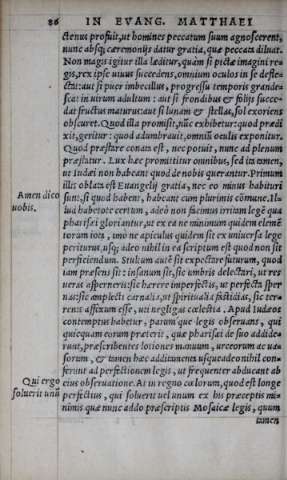 86 IN EVANG. MATTHAEI
ctenus profuit, ut homines peccatum suum agnoscerent,
nunc absq; cæremonijs datur gratia, quæ peccata diluat.
Non magis igitur illa læditur, quàm si pictæ imagini re-
gis, rex ipse uiuus succedens, omnium oculos in se defle-
ctat: aut si puer imbecillus, progressu temporis grande-
scat in uirum adultum: aut si frondibus & folijs succe-
dat fructus maturus: aut si lunam & stellas, sol exoriens
obscuret. Quod illa promisit, hæc exhibetur: quod prædi
xit, geritur: quod adumbrauit, omniū oculis exponitur.
Quod præstare conata est, nec potuit, nunc ad plenum
præstatur. Lux hæc promittitur omnibus, sed ita tamen,
ut Iudæi non habeant quod de nobis querantur. Primum
illis oblata est Euangelij gratia, nec eo minus habituri
Amen dico
uobis.
sunt, si quod habent, habeant cum plurimis cōmune. Il-
lud habetote certum, adeò non facimus irritam legē qua
pharisæi gloriantur, ut ex ea ne minimum quidem elemē
torum iota, imò ne apiculus quidem sit ex uniuersa lege
periturus, usq; adeo nihil in ea scriptum est quod non sit
perficiendum. Stultum autē sit expectare futurum, quod
iam præsens sit: insanum sit, sic umbris delectari, ut res
ueras asperneris: sic hærere imperfectis, ut perfecta sper
nas: sic amplecti carnalia, ut spiritualia fastidias, sic ter-
renis affixum esse, uti negligas cœlestia. Apud Iudæos
contemptius habetur, parum quæ legis obseruans, qui
quicquam eorum præterit, quæ pharisæi de suo addide-
runt, præscribentes lotiones manuum, urceorum ac ua-
sorum, & tamen hæc additamenta usqueadeo nihil con-
ferunt ad perfectionem legis, ut frequenter abducant ab
Qui ergo
soluerit unū
eius obseruatione. At in regno cœlorum, quod est longe
perfectius, qui soluerit uel unum ex his præceptis mi-
nimis quæ nunc addo præscriptis Mosaicæ legis, quum
tamen